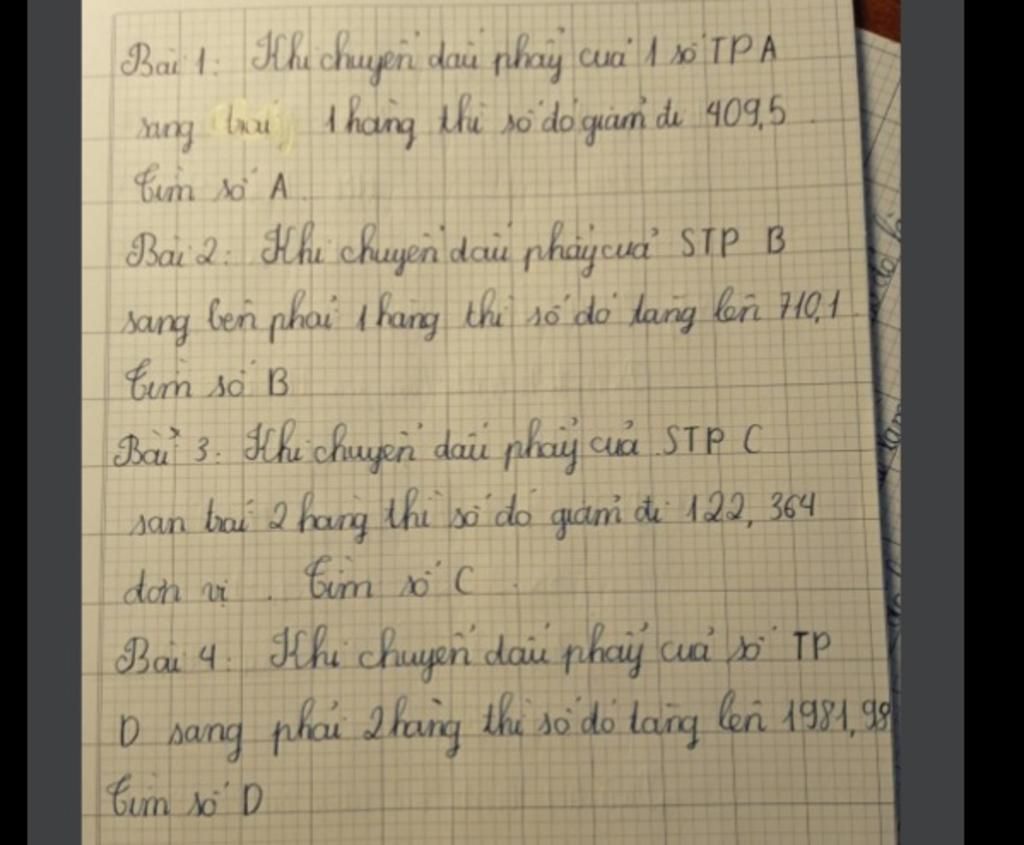 Bài 1: Khi chuyển dấu phẩy của 1 số TP A
sang trái 1 hàng thì số đó giảm đi 409,5
Tìm số A.
Bài 2: Khi chuyển dấu phẩy của STP B
sang bên phải 1 hàng thì số đó tăng lên 710,1
Tìm số B
Bài 3: Khi chuyển dấu phẩy của STP C
san trái 2 hàng thì số đó giảm đi 122,364
đơn vị. Tìm số C.
Bài 4: Khi chuyển dấu phẩy của số TP
D sang phải 2 hàng thì số đó tăng lên 1981,98
Tìm số D